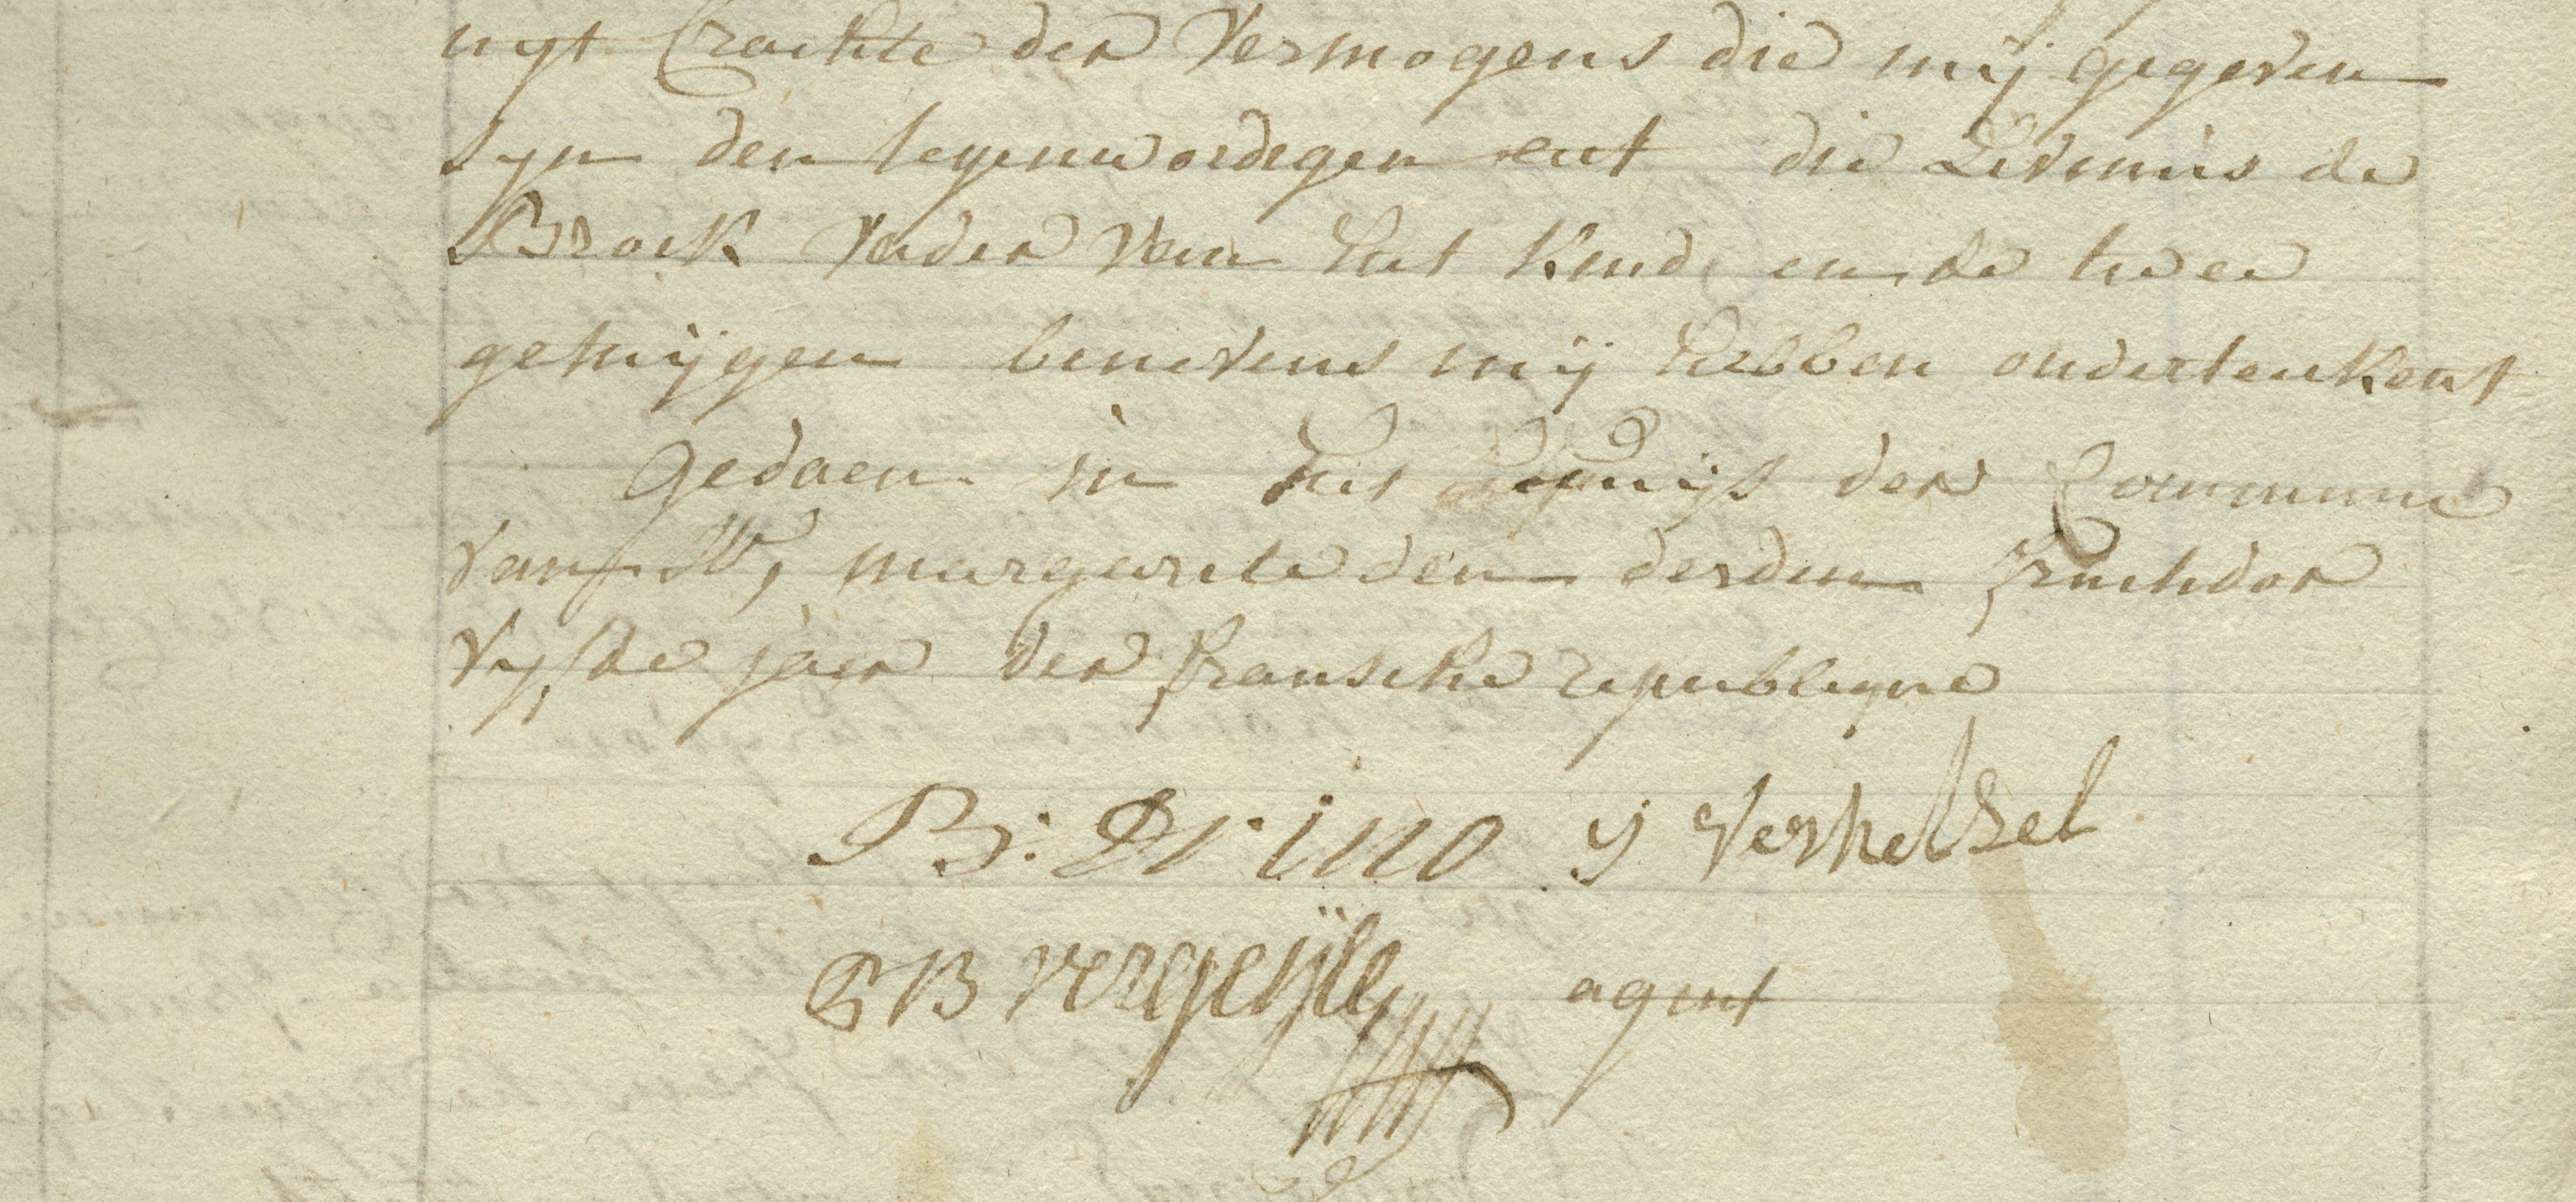 uyt crachte der Vermogens die mij gegeven
syn den tegenwordigen act die Livinus de
Brock vader van het kind en de twee
getuijgen benevens mij hebben ondertenkent
Gedaen in het huijs der Commune
van St, margarite den derden fruchdor
vyfde jaer der fransche republique
B: De: ino j Verhelsel
PB vergeijle agent